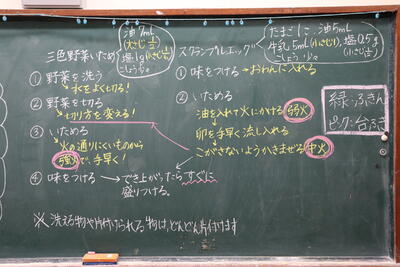 三色野菜いため
油7mL
(大さじ1/2)
塩1g(小さじ1/5)
こしょう少々
① 野菜を洗う
→水をよく切る!
② 野菜を切る
→切り方を変える!
③ いためる
→火の通りにくいものから
強火で、手早く!
④ 味をつける→でき上がったらすぐに
盛りつける。
スクランブルエッグ
たまご1こ、油5mL
牛乳5mL(小さじ1)、塩0.5g
こしょう少々
① 味をつける→おわんに入れる
② いためる
油を入れて火にかける 弱火
卵を手早く流し入れる
こがさないようかきまぜる 中火
緑:ふきん
ピンク:台ふき
※ 洗える物や片付けられる物は、どんどん片付けます